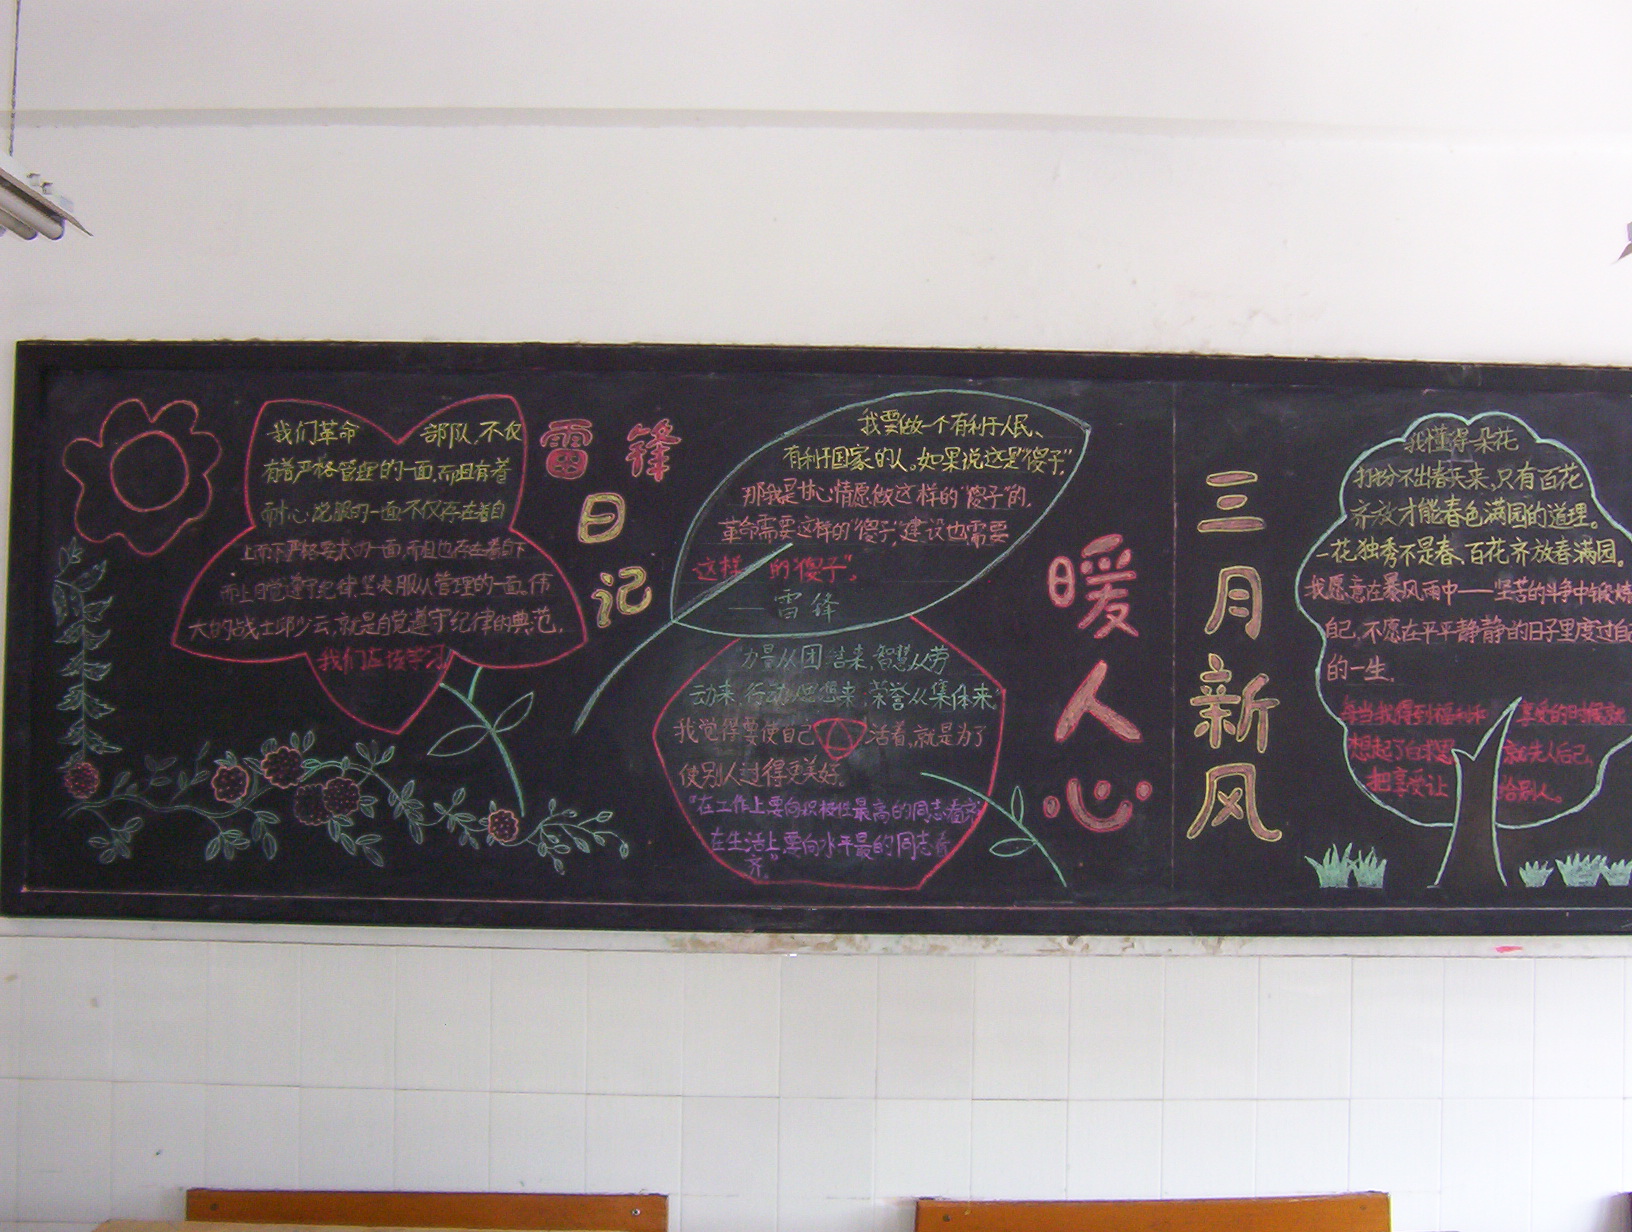 我们革命 部队,不仅
有着严格管理的一面,而且有着
耐心说服的一面.不仅存在着自
上而下严格要求的一面,而且也存在着自下
而上自觉遵守纪律,坚决服从管理的一面。伟
大的战士邱少云,就是自觉遵守纪律的典范.
我们应该学习
雷锋
日
记
我要做一个有利于人民、
有利于国家的人。如果说这是“傻子”
那我是甘心情愿做这样的“傻子”的.
革命需要这样的“傻子”,建设也需要
这样 的“傻子”。
——雷锋
“力量从团结来,智慧从劳
动来,行动从思想来,荣誉从集体来”
我觉得要使自己 活着,就是为了
使别人过得更美好。
“在工作上要向积极性最高的同志看齐
在生活上要向水平最的同志看
齐”
暖人心
三月新风
我懂得一朵花
打扮不出春天来,只有百花
齐放才能春色满园的道理。
一花独秀不是春、百花齐放春满园。
我愿意在暴风雨中——坚苦的斗争中锻炼
自己,不愿在平平静静的日子里度过自己
的一生.
每当我得到福利和 享受的时候,就
想起了白求恩 就先人后己,
把享受让 给别人。